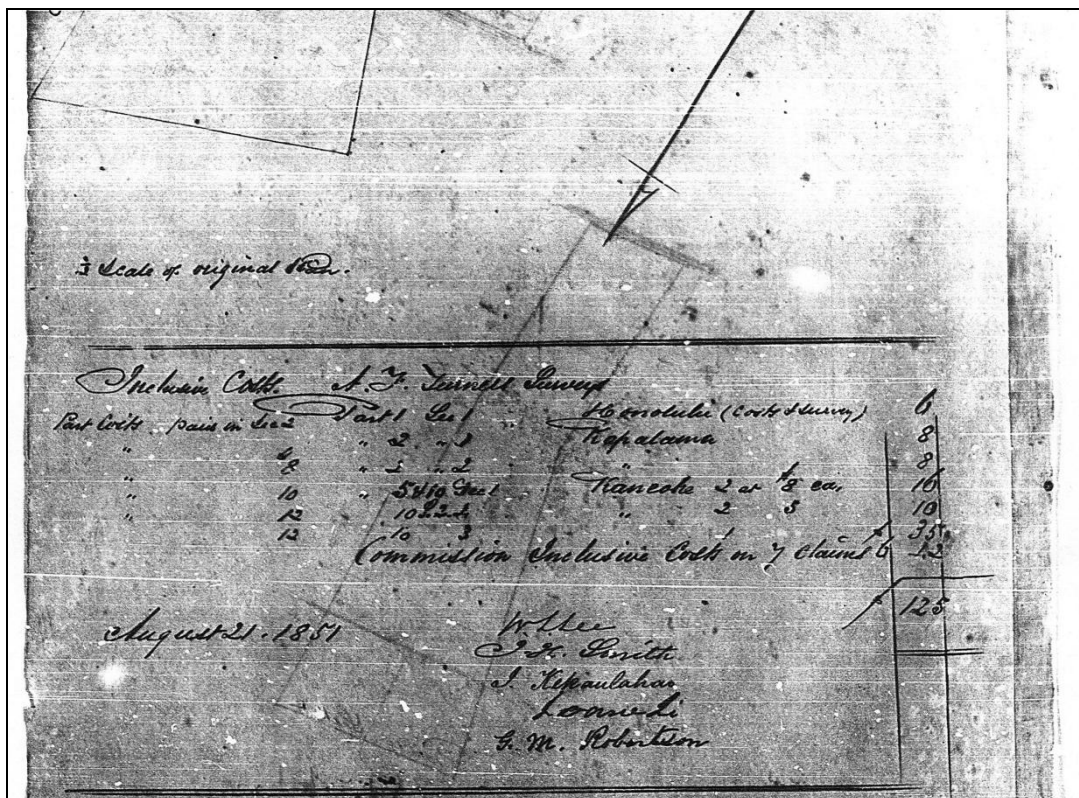 ½ Scale of original Plan.
Inclusive Costs. A. F. Turner's Surveys
Part Costs paid in Sec 2 Part 1 Sec 1 " Honolulu (Costs & Survey) 6
" 2 " 1 Kapalama 8
" 8 " 2 " 2 " 8
" 10 " 5 & 10 Sec 1 Kaneohe 2 at $8 ea. 16
" 12 10 " 2 5 10
12 10 3 1 35
Commission Inclusive Costs on 7 claims 6 42
$ 125
August 21. 1851
W L Lee
J. H. Smith
J. Kekaulahao
Loane Ii
G. M. Robertson